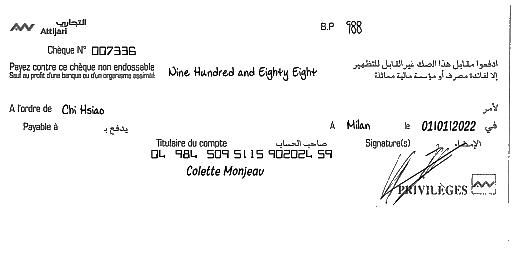 التجاري
Attijari
B.P 988
Chèque N° 007336
Payez contre ce chèque non endossable
Sauf au profit d'une banque ou d'un organisme assimilé
Nine Hundred and Eighty Eight
ادفعوا مقابل هذا الصك غير القابل للتظهير
إلا لفائدة مصرف أو مؤسسة مالية مماثلة
A l'ordre de Chi Hsiao لأمر
Payable à يدفع بـ A Milan le 01/01/2022 في
Titulaire du compte صاحب الحساب Signature(s) الإمضاء
04 984 509 5115 902024 59
Colette Monjeau
PRIVILÈGES